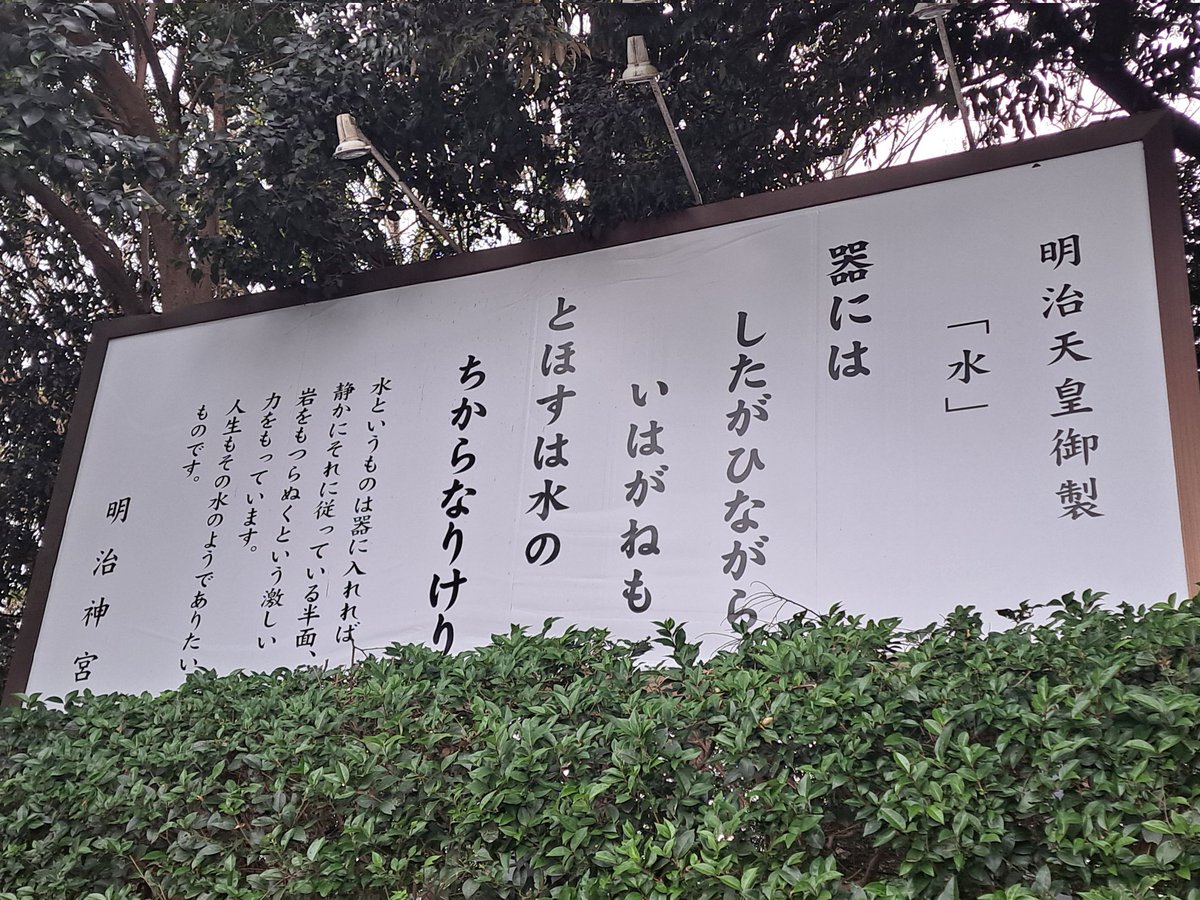 明治天皇御製
「水」
器には
したがひながら
いはがねも
とほすは水の
ちからなりけり
水というものは器に入れれば
静かにそれに従っている半面、
岩をもつらぬくという激しい
力をもっています。
人生もその水のようでありたい
ものです。
明治神宮